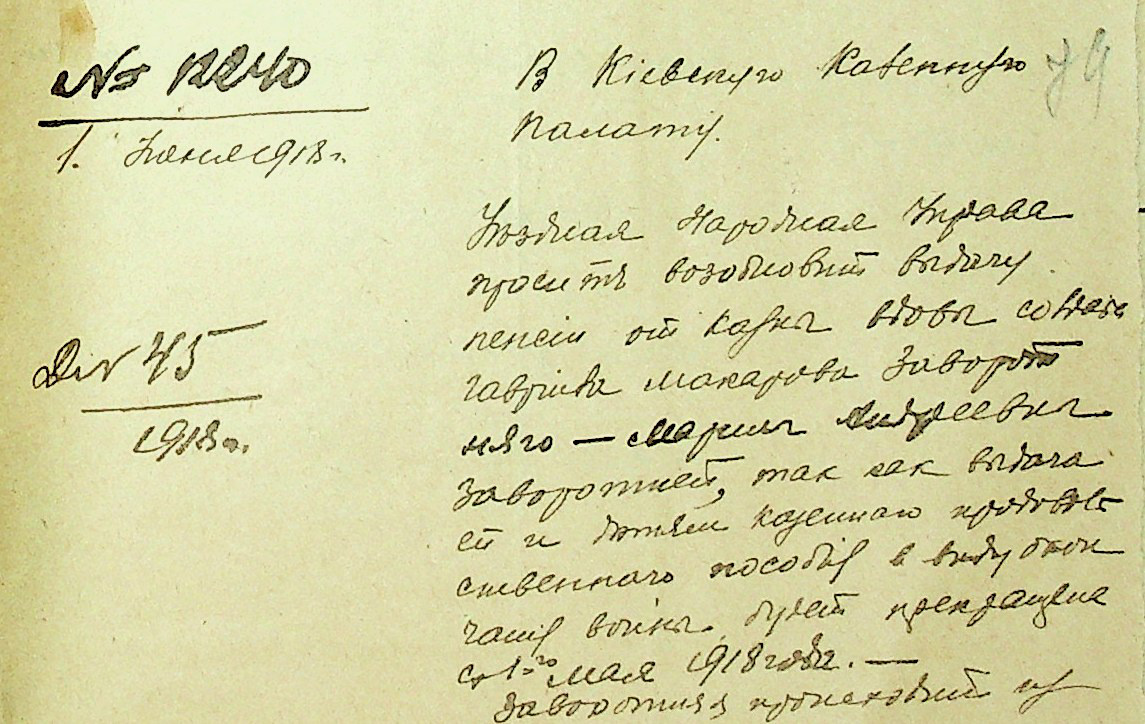 № 12240
1. Июня 1918 г.
В Кіевскую Казенную
79
Палату.
Уездная Народная Управа
просит возобновит выдачу
пенсіи от казны вдовы солдата
Гавріила Макарова Заворот
няго — Маріи Андреевны
Заворотней, так как выдача
ей и детям казеннаго продоволь
ственнаго пособія в виду окон
чанія войны будет прекращена
с 1-го мая 1918 года. —
Заворотняя происходит из
Д № 45
1918 г.